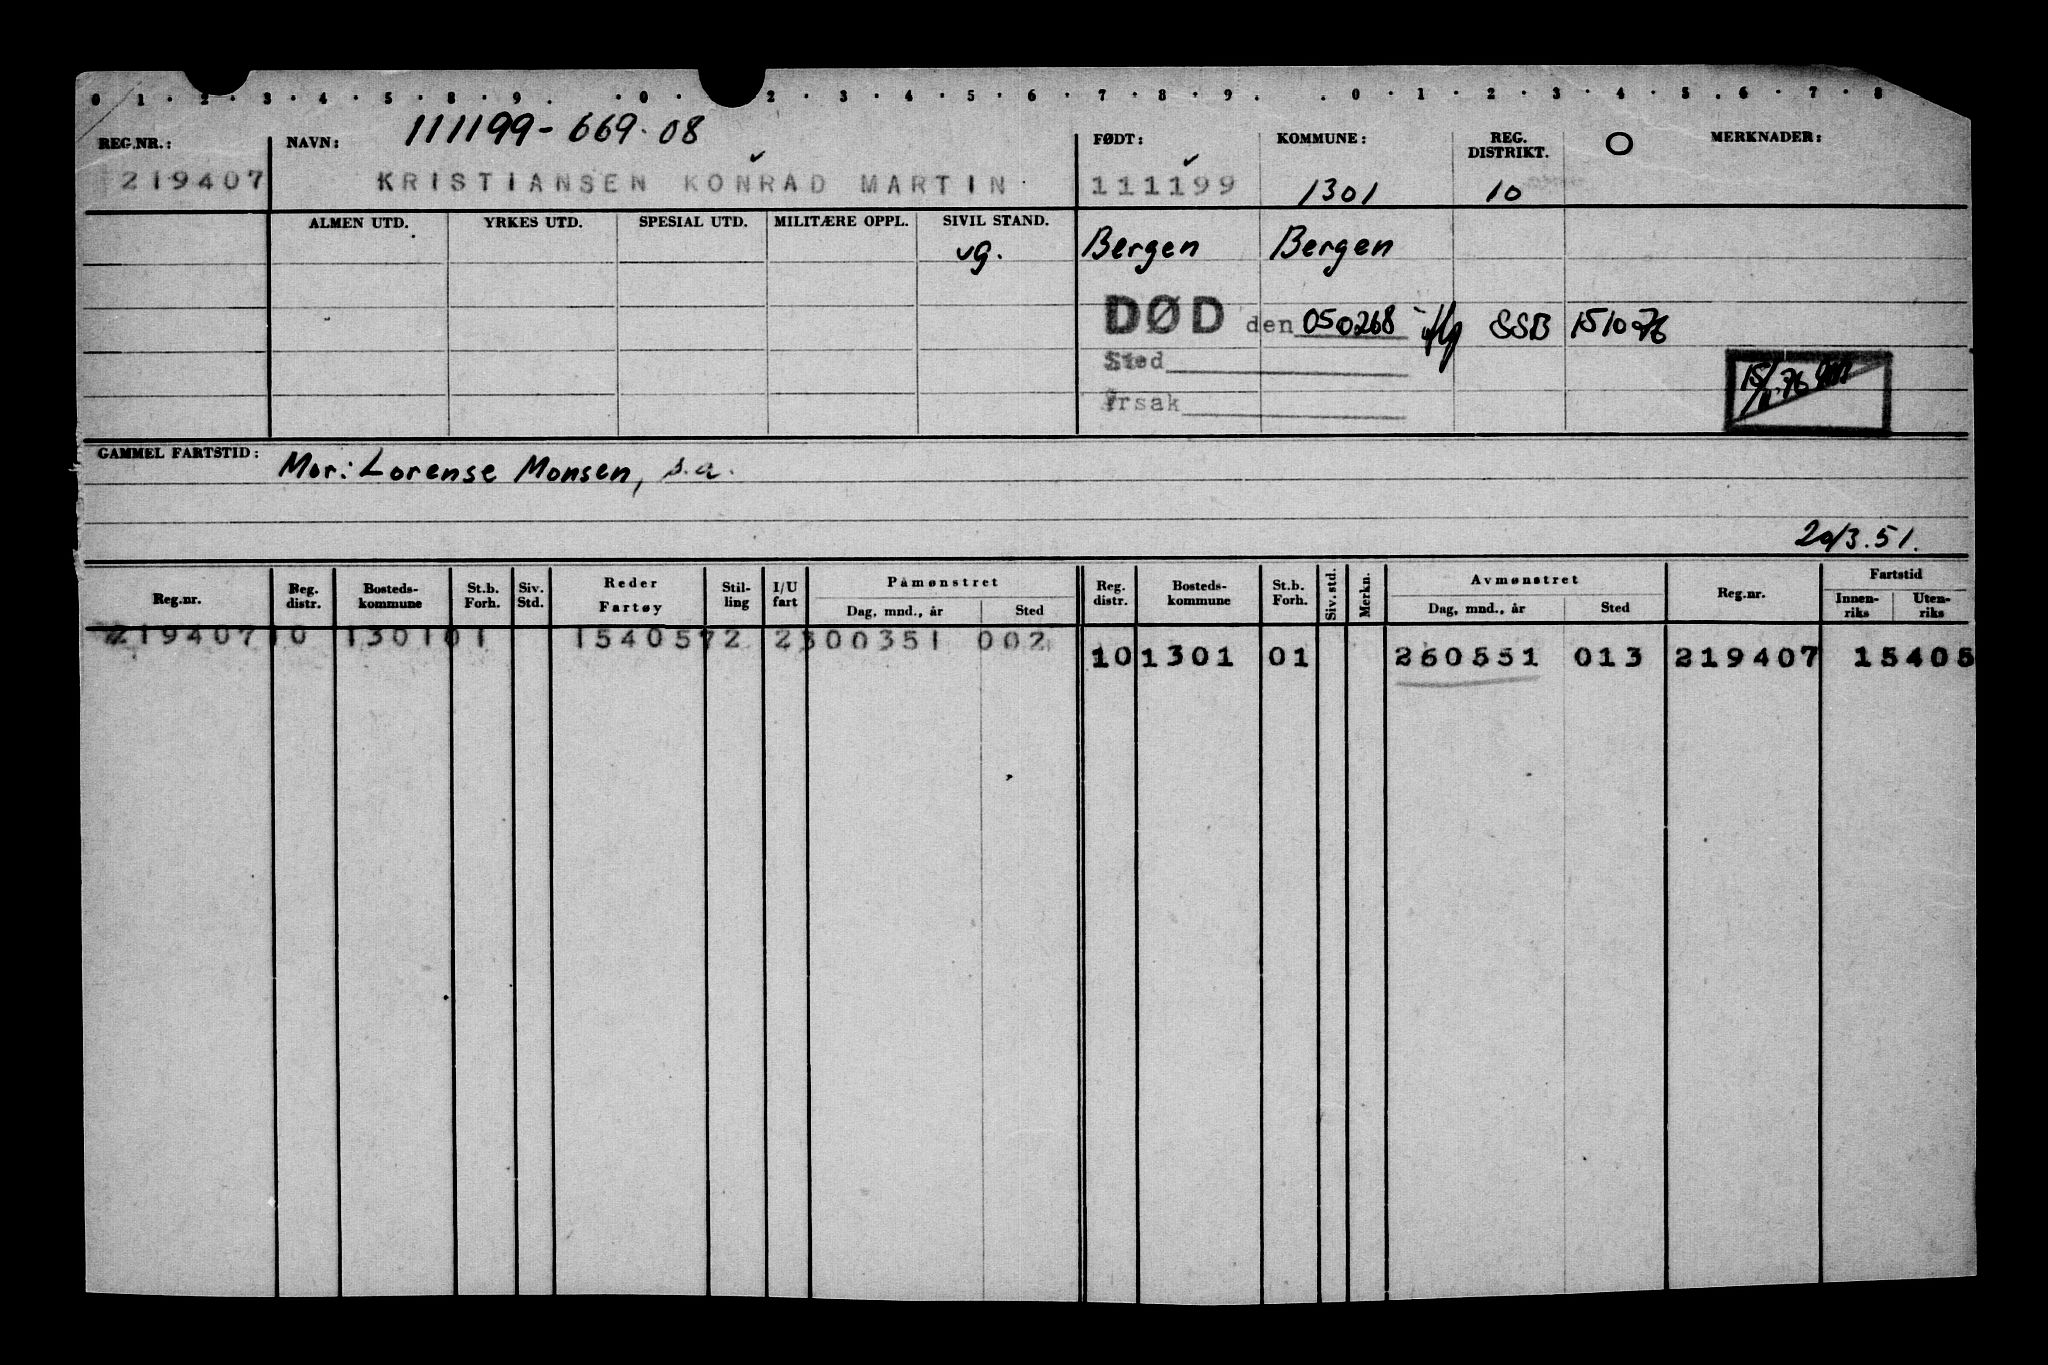 0 1 · 2 · 3 · 4 · 5 · 8 · 9 . · 0 · 2 · 3 · 4 · 5 · 6 · 7 · 8 · 9 . . 0 · 1 · 2 · 3 · 4 · 5 . 6 · 7 · 8
111199-669.08
REG.NR.: NAVN: FØDT: KOMMUNE: REG. DISTRIKT. O MERKNADER:
219407 KRISTIANSEN KONRAD MARTIN 111199 1301 10
ALMEN UTD. YRKES UTD. SPESIAL UTD. MILITÆRE OPPL. SIVIL STAND.
ug. Bergen Bergen
DØD den 050268 SSB 151076
Sted
Årsak
GAMMEL FARTSTID: Mor: Lorense Monsen, s.a.
20/3.51.
Reg.nr. Reg. distr. Bosteds- kommune St.b. Forh. Siv. Std. Reder Fartøy Stil- ling I/U fart Påmønstret Dag, mnd., år Sted Reg. distr. Bosteds- kommune St.b. Forh. Siv. std. Merkn. Avmønstret Dag, mnd., år Sted Reg.nr. Fartstid Innen- riks Uten- riks
219407 10 1301 01 1540572 2300351 002
10 1301 01 260551 013 219407 15405